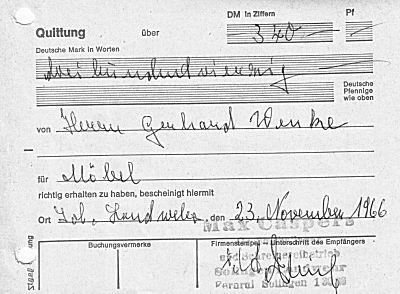 DM in Ziffern Pf
Quittung über 340 —
Deutsche Mark in Worten
dreihundertvierzig
Deutsche
Pfennige
wie oben
von Herrn Gerhard
für Möbel
richtig erhalten zu haben, bescheinigt hiermit
Ort den 23. November 1966
Max Caspers
Buchungsvermerke Firmenstempel – Unterschrift des Empfängers
Solingen